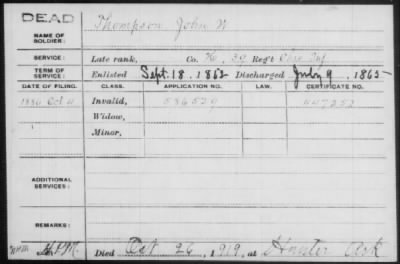 DEAD
NAME OF SOLDIER: Thompson John W
SERVICE: Late rank, Co. K, 39 Reg't Ohio Inf
TERM OF SERVICE: Enlisted Sept. 18, 1862 Discharged July 9, 1865
DATE OF FILING. CLASS. APPLICATION NO. LAW. CERTIFICATE NO.
1886 Oct 4 Invalid, 586529 447252
Widow,
Minor,
ADDITIONAL SERVICES:
REMARKS:
Died Oct 26, 1919, at Hunter Ark